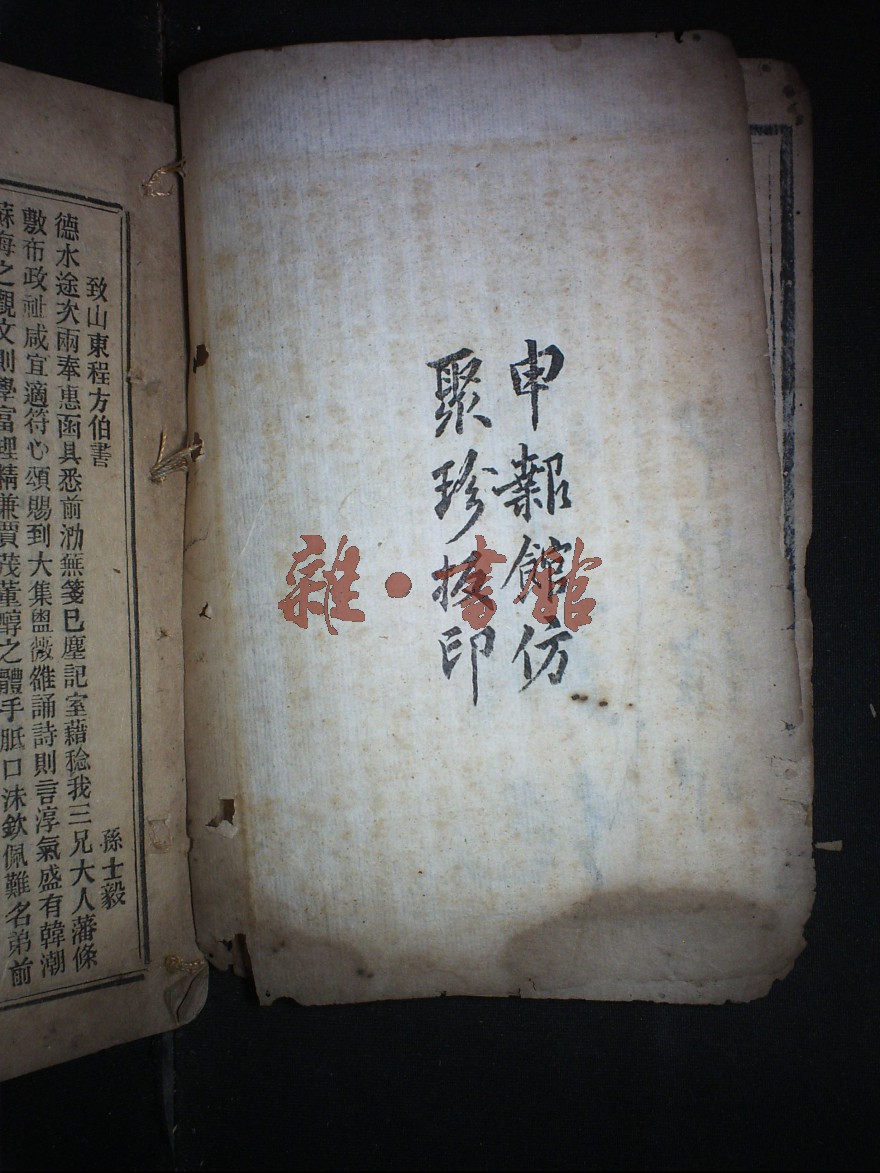 申報館仿
聚珍板印
雜·書館
致山東程方伯書
孫士毅
德水途次兩奉惠函具悉前泐蕪箋已塵記室藉稔我三兄大人藩條
敷布政祉咸宜適符心頌賜到大集盥薇雒誦詩則言淳氣盛有韓潮
蘇海之觀文則學富理精兼賈茂董醇之體手胝口沫欽佩難名弟前